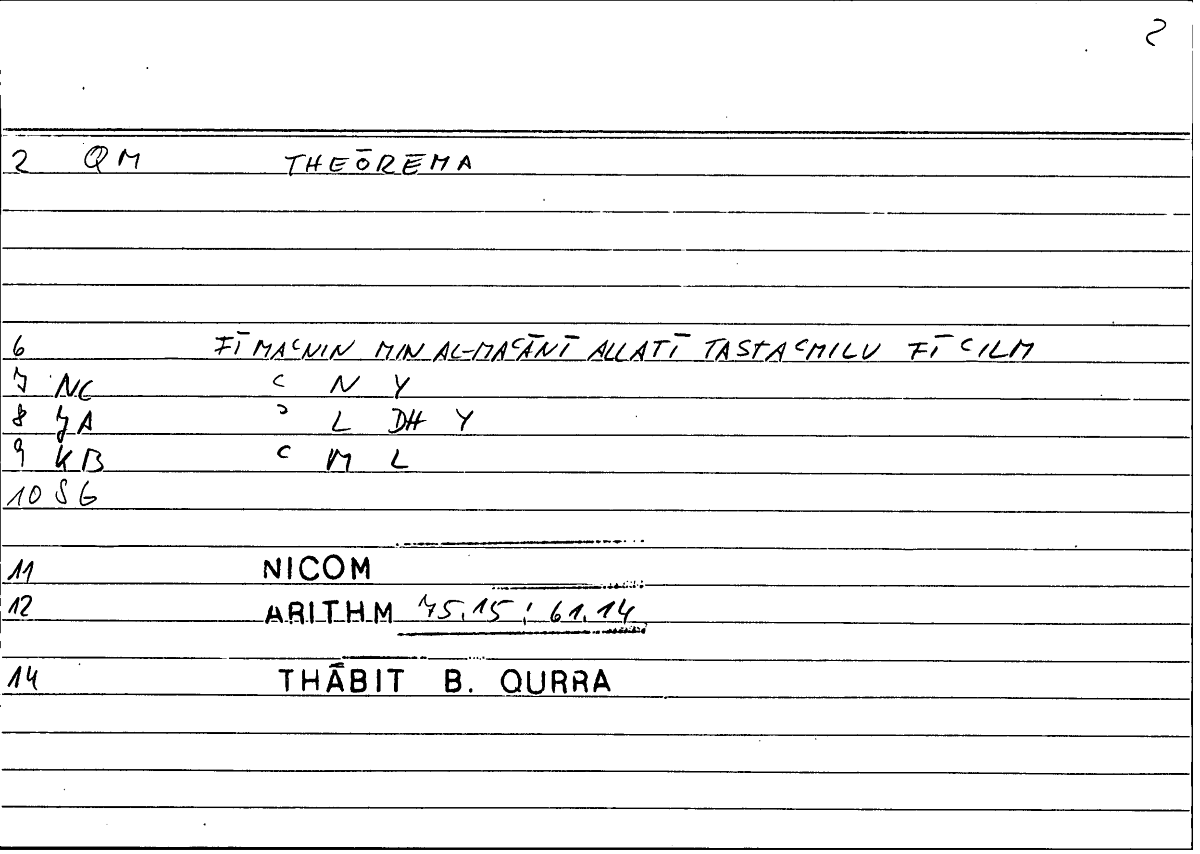 2
2 QM THEŌRĒMA
6 FĪ MAᶜNIN MIN AL-MAᶜĀNĪ ALLATĪ TASTAᶜMILU FĪ ᶜILM
7 NC ᶜ N Y
8 JA ᵓ L DH Y
9 KB ᶜ M L
10 SG
11 NICOM
12 ARITHM 75,15 ; 61,14
14 THĀBIT B. QURRA